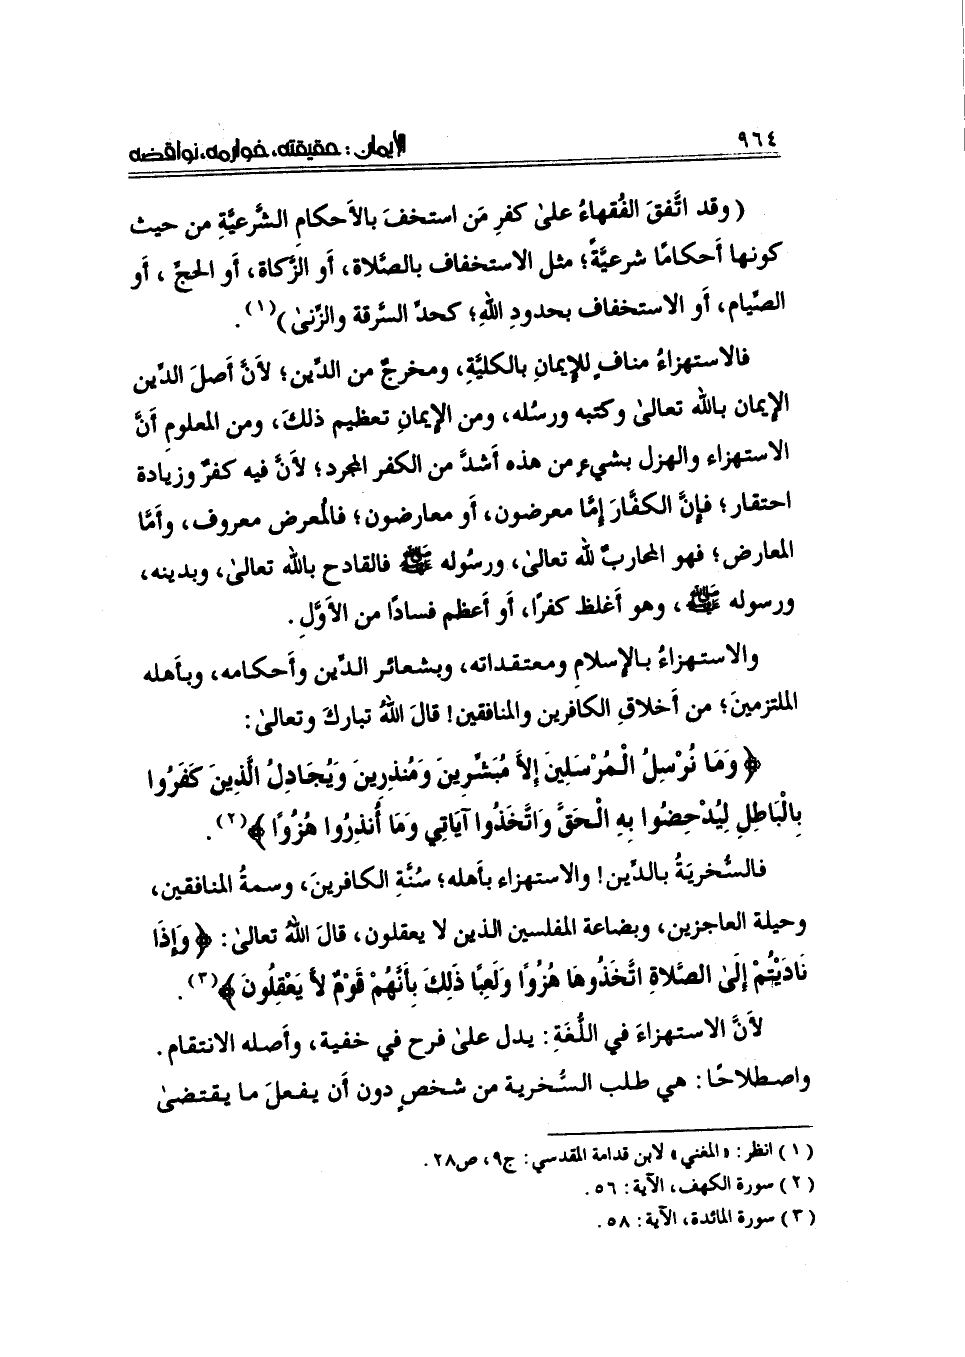 ٩٦٤
الإيمان: حقيقته، خوارمه، نواقضه
( وقد اتَّفقَ الفُقهاءُ علىٰ كفرِ مَن استخفَ بالأحكامِ الشَّرعيَّةِ من حيث
كونها أحكامًا شرعيَّةً؛ مثل الاستخفاف بالصَّلاة، أو الزَّكاة، أو الحجِّ ، أو
الصِّيام، أو الاستخفاف بحدودِ اللهِ؛ كحدِّ السَّرقة والزِّنىٰ )(١) .
فالاستهزاءُ منافٍ للإيمانِ بالكليَّةِ، ومخرجٌ من الدِّين؛ لأنَّ أصلَ الدِّين
الإيمان بالله تعالىٰ وكتبه ورسُله، ومن الإيمانِ تعظيم ذلكَ، ومن المعلومِ أنَّ
الاستهزاء والهزل بشيءٍ من هذه أشدَّ من الكفر المجرد؛ لأنَّ فيه كفرٌ وزيادة
احتقار؛ فإنَّ الكفَّارَ إمَّا معرضون، أو معارضون؛ فالمُعرض معروف، وأمَّا
المعارض؛ فهو المحاربٌ لله تعالىٰ، ورسُوله ﷺ فالقادح بالله تعالىٰ، وبدينه،
ورسوله ﷺ ، وهو أغلظ كفرًا، أو أعظم فسادًا من الأوَّلِ.
والاستهزاءُ بالإسلامِ ومعتقداته، وبشعائر الدِّين وأحكامه، وبأهله
الملتزمينَ؛ من أخلاقِ الكافرين والمنافقين! قالَ اللهُ تباركَ وتعالىٰ:
﴿ وَمَا نُرْسِلُ الْمُرْسَلِينَ إِلاَّ مُبَشِّرِينَ وَمُنذِرِينَ وَيُجَادِلُ الَّذِينَ كَفَرُوا
بِالْبَاطِلِ لِيُدْحِضُوا بِهِ الْحَقَّ وَاتَّخَذُوا آيَاتِي وَمَا أُنذِرُوا هُزُوًا ﴾(٢).
فالسُّخريَةُ بالدِّين! والاستهزاء بأهله؛ سُنَّةِ الكافرينَ، وسمةُ المنافقين،
وحيلة العاجزين، وبضاعة المفلسين الذين لا يعقلون، قالَ اللهُ تعالىٰ: ﴿ وَإِذَا
نَادَيْتُمْ إِلَىٰ الصَّلاةِ اتَّخَذُوهَا هُزُوًا وَلَعِبًا ذَلِكَ بِأَنَّهُمْ قَوْمٌ لاَّ يَعْقِلُونَ ﴾(٣).
لأنَّ الاستهزاءَ في اللُّغَةِ: يدل علىٰ فرح في خفية، وأصله الانتقام.
واصطلاحًا: هي طلب السُّخرية من شخصٍ دون أن يفعلَ ما يقتضىٰ
(١) انظر: «المغني» لابن قدامة المقدسي: ج٩، ص٢٨.
(٢) سورة الكهف، الآية: ٥٦.
(٣) سورة المائدة، الآية: ٥٨.